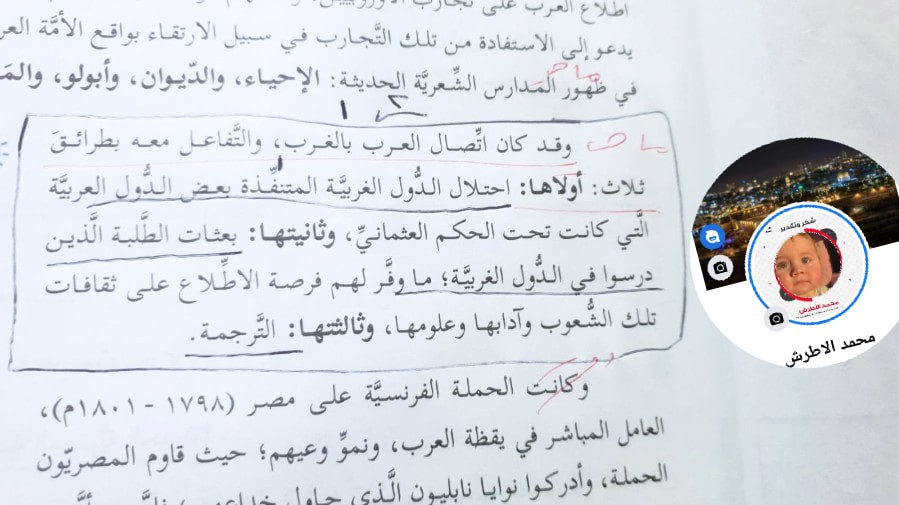 اطلاع العرب على تجارب الأوروبيين
يدعو إلى الاستفادة من تلك التَّجارب في سبيل الارتقاء بواقع الأمَّة
في ظهور المَدارس الشِّعريَّة الحديثة: الإحياء، والدّيوان، وأبولو،
وقد كان اتِّصال العرب بالغرب، والتَّفاعل معه بطرائقَ
ثلاث: أولاها: احتلال الدُّول الغربيَّة المتنفِّذة بعض الدُّول العربيَّة
الَّتي كانت تحت الحكم العثمانيِّ، وثانيتها: بعثات الطَّلبة الَّذين
درسوا في الدُّول الغربيَّة؛ ما وفَّر لهم فرصة الاطِّلاع على ثقافات
تلك الشُّعوب وآدابها وعلومها، وثالثتها: التَّرجمة.
وكانت الحملة الفرنسيَّة على مصر (١٧٩٨ - ١٨٠١م)،
العامل المباشر في يقظة العرب، ونموِّ وعيهم؛ حيث قاوم المصريّون
الحملة، وأدركوا نوايا نابليون الَّذي حاول
شكر وتقدير
محمد الاطرش
محمد الاطرش